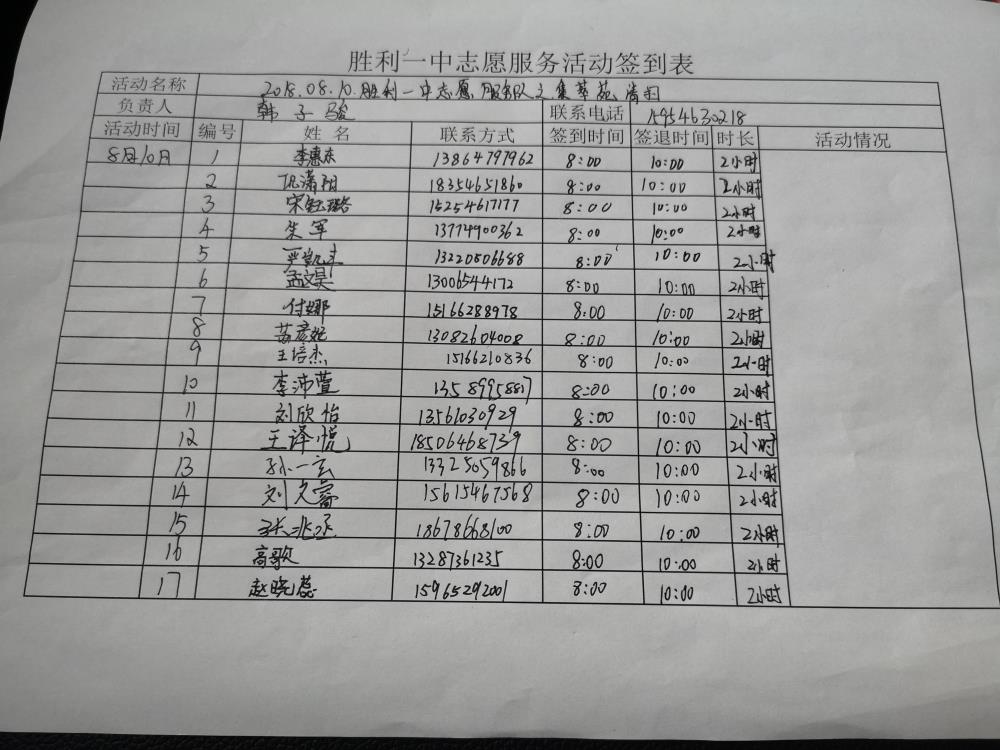 胜利一中志愿服务活动签到表
活动名称 2018.08.10.胜利一中志愿服务队之集萃苑清扫
负责人 韩子骏 联系电话 15954630218
活动时间 编号 姓名 联系方式 签到时间 签退时间 时长 活动情况
8月10月 1 李惠东 13864797962 8:00 10:00 2小时
2 潇翔 18354651860 8:00 10:00 2小时
3 宋钰璐 15254617177 8:00 10:00 2小时
4 朱军 13774900362 8:00 10:00 2小时
5 严凯 13220506688 8:00 10:00 2小时
6 孟文昊 13006544172 8:00 10:00 2小时
7 付娜 15166288978 8:00 10:00 2小时
8 苗彦妮 13082604008 8:00 10:00 2小时
9 王培杰 15166210836 8:00 10:00 2小时
10 李沛萱 13589958817 8:00 10:00 2小时
11 刘欣怡 13561030929 8:00 10:00 2小时
12 王译悦 18506468739 8:00 10:00 2小时
13 孙一玄 13325059866 8:00 10:00 2小时
14 刘文睿 15615467568 8:00 10:00 2小时
15 张兆丞 18678668100 8:00 10:00 2小时
16 高歌 13287361235 8:00 10:00 2小时
17 赵晓蕊 15965292001 8:00 10:00 2小时